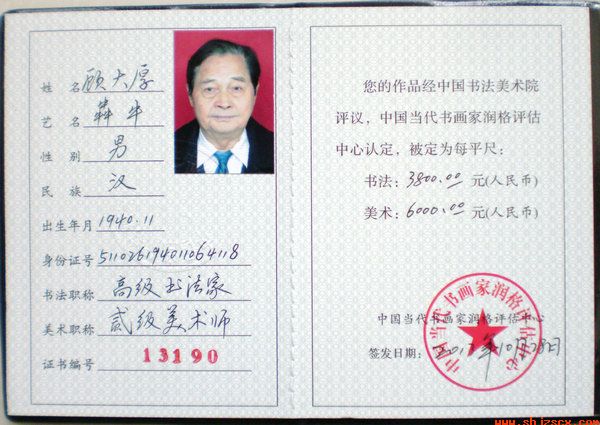 姓 名 顾大厚
艺 名 犇牛
性 别 男
民 族 汉
出生年月 1940.11
身份证号 511026194011064118
书法职称 高级书法家
美术职称 贰级美术师
证书编号 13190
您的作品经中国书法美术院
评议，中国当代书画家润格评估
中心认定，被定为每平尺：
书法：3800.00 元(人民币)
美术：6000.00 元(人民币)
中国当代书画家润格评估中心
中国当代书画家润格评估中心
签发日期： 年10月28日
www.shjzscx.com